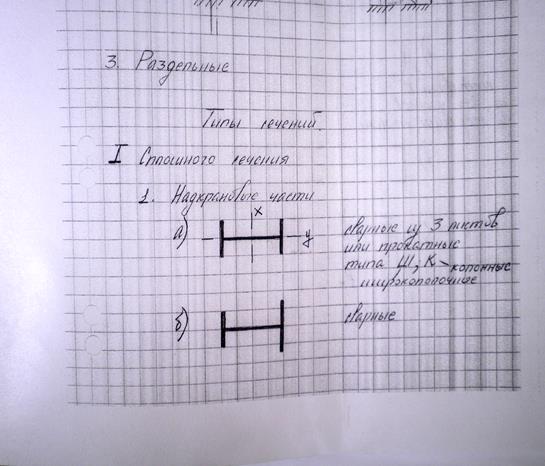 3. Раздельные
Типы сечений.
I Сплошного сечения
1. Надкрановые части
а)
x
y
сварные из 3 листов
или прокатные
типа Ш, К - колонные
широкополочные
б)
сварные